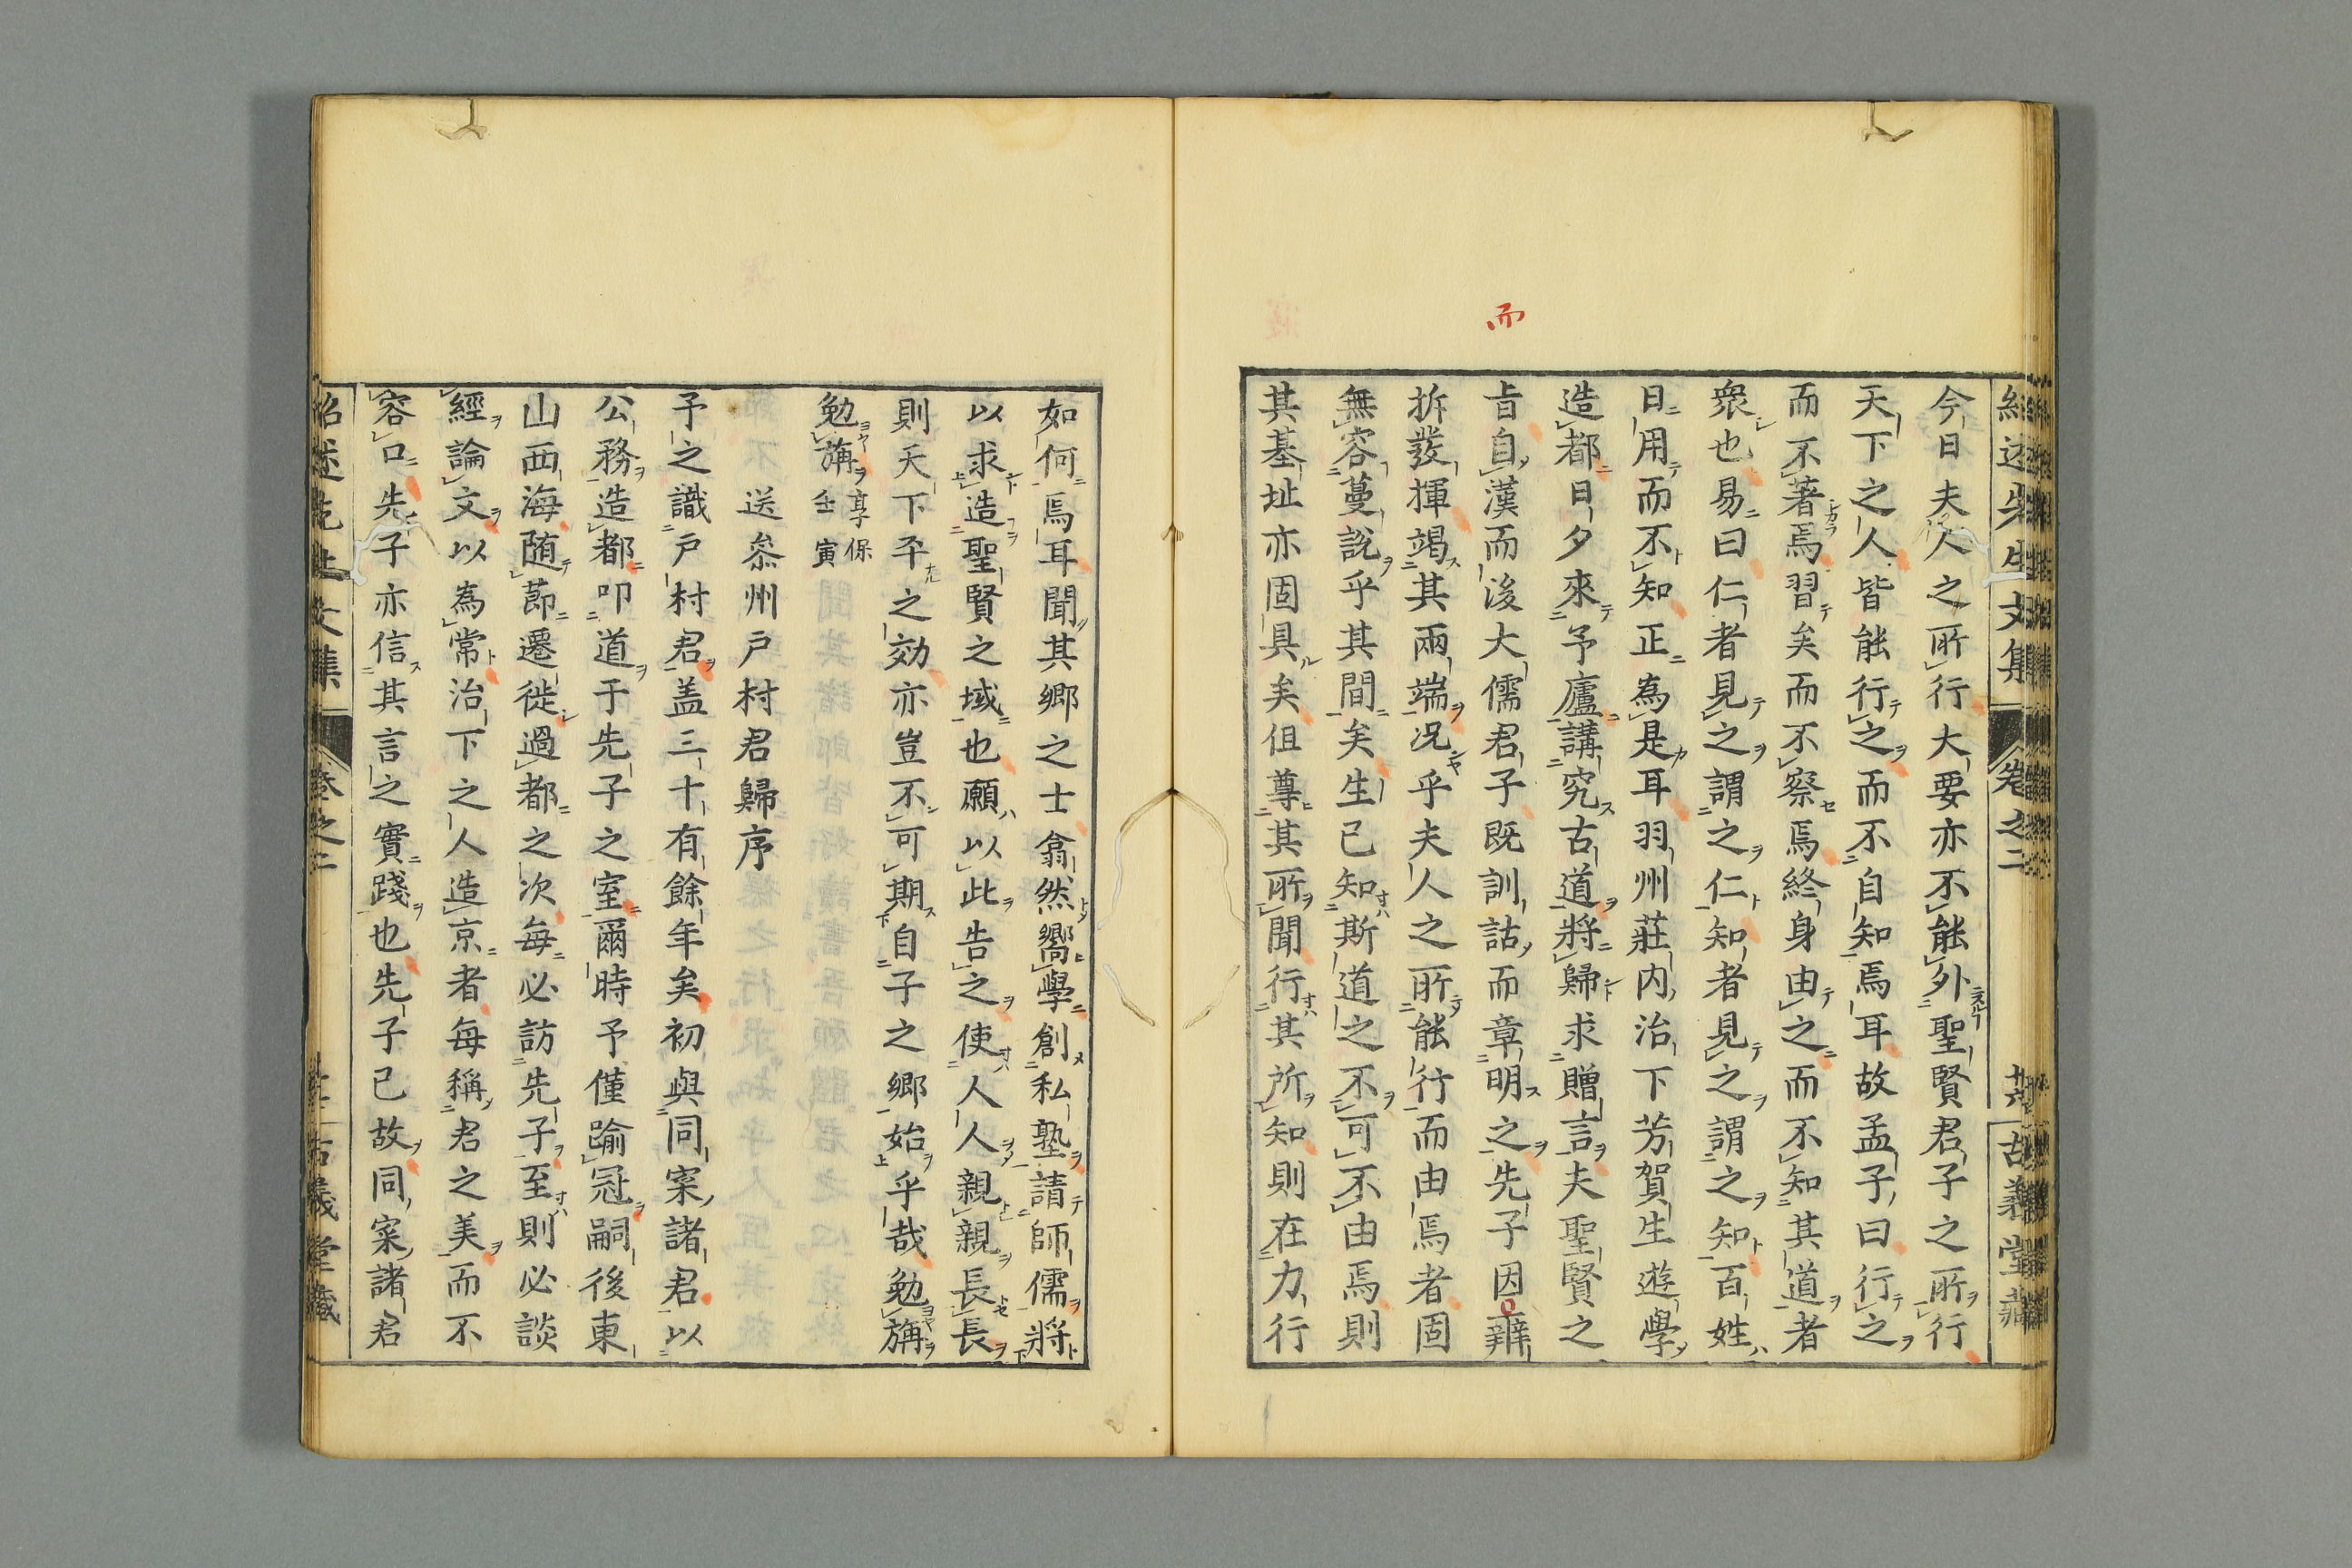 而
今日夫人之所行大要亦不能外聖賢君子之所行
天下之人皆能行之而不自知焉耳故孟子曰行之
而不著焉習矣而不察焉終身由之而不知其道者
衆也易曰仁者見之謂之仁知者見之謂之知百姓
日用而不知正為是耳羽州莊内治下芳賀生遊學
造都日夕來予廬講究古道將歸求贈言夫聖賢之
旨自漢而後大儒君子既訓詁而章明之先子因辨
拆發揮竭其兩端况乎夫人之所能行而由焉者固
無容蔓說乎其間矣生已知斯道之不可不由焉則
其基址亦固具矣但尊其所聞行其所知則在力行
如何焉耳聞其鄉之士翕然嚮學創私塾請師儒將
以求造聖賢之域也願以此告之使人人親親長長
則天下平之効亦豈不可期自子之鄉始乎哉勉旃
勉旃 享保
壬寅
送叅州戸村君歸序
予之識戸村君盖三十有餘年矣初與同寀諸君以
公務造都叩道于先子之室爾時予僅踰冠嗣後東
山西海随莭遷徙過都之次每必訪先子至則必談
經論文以為常治下之人造京者每稱君之美而不
容口先子亦信其言之實踐也先子已故同寀諸君